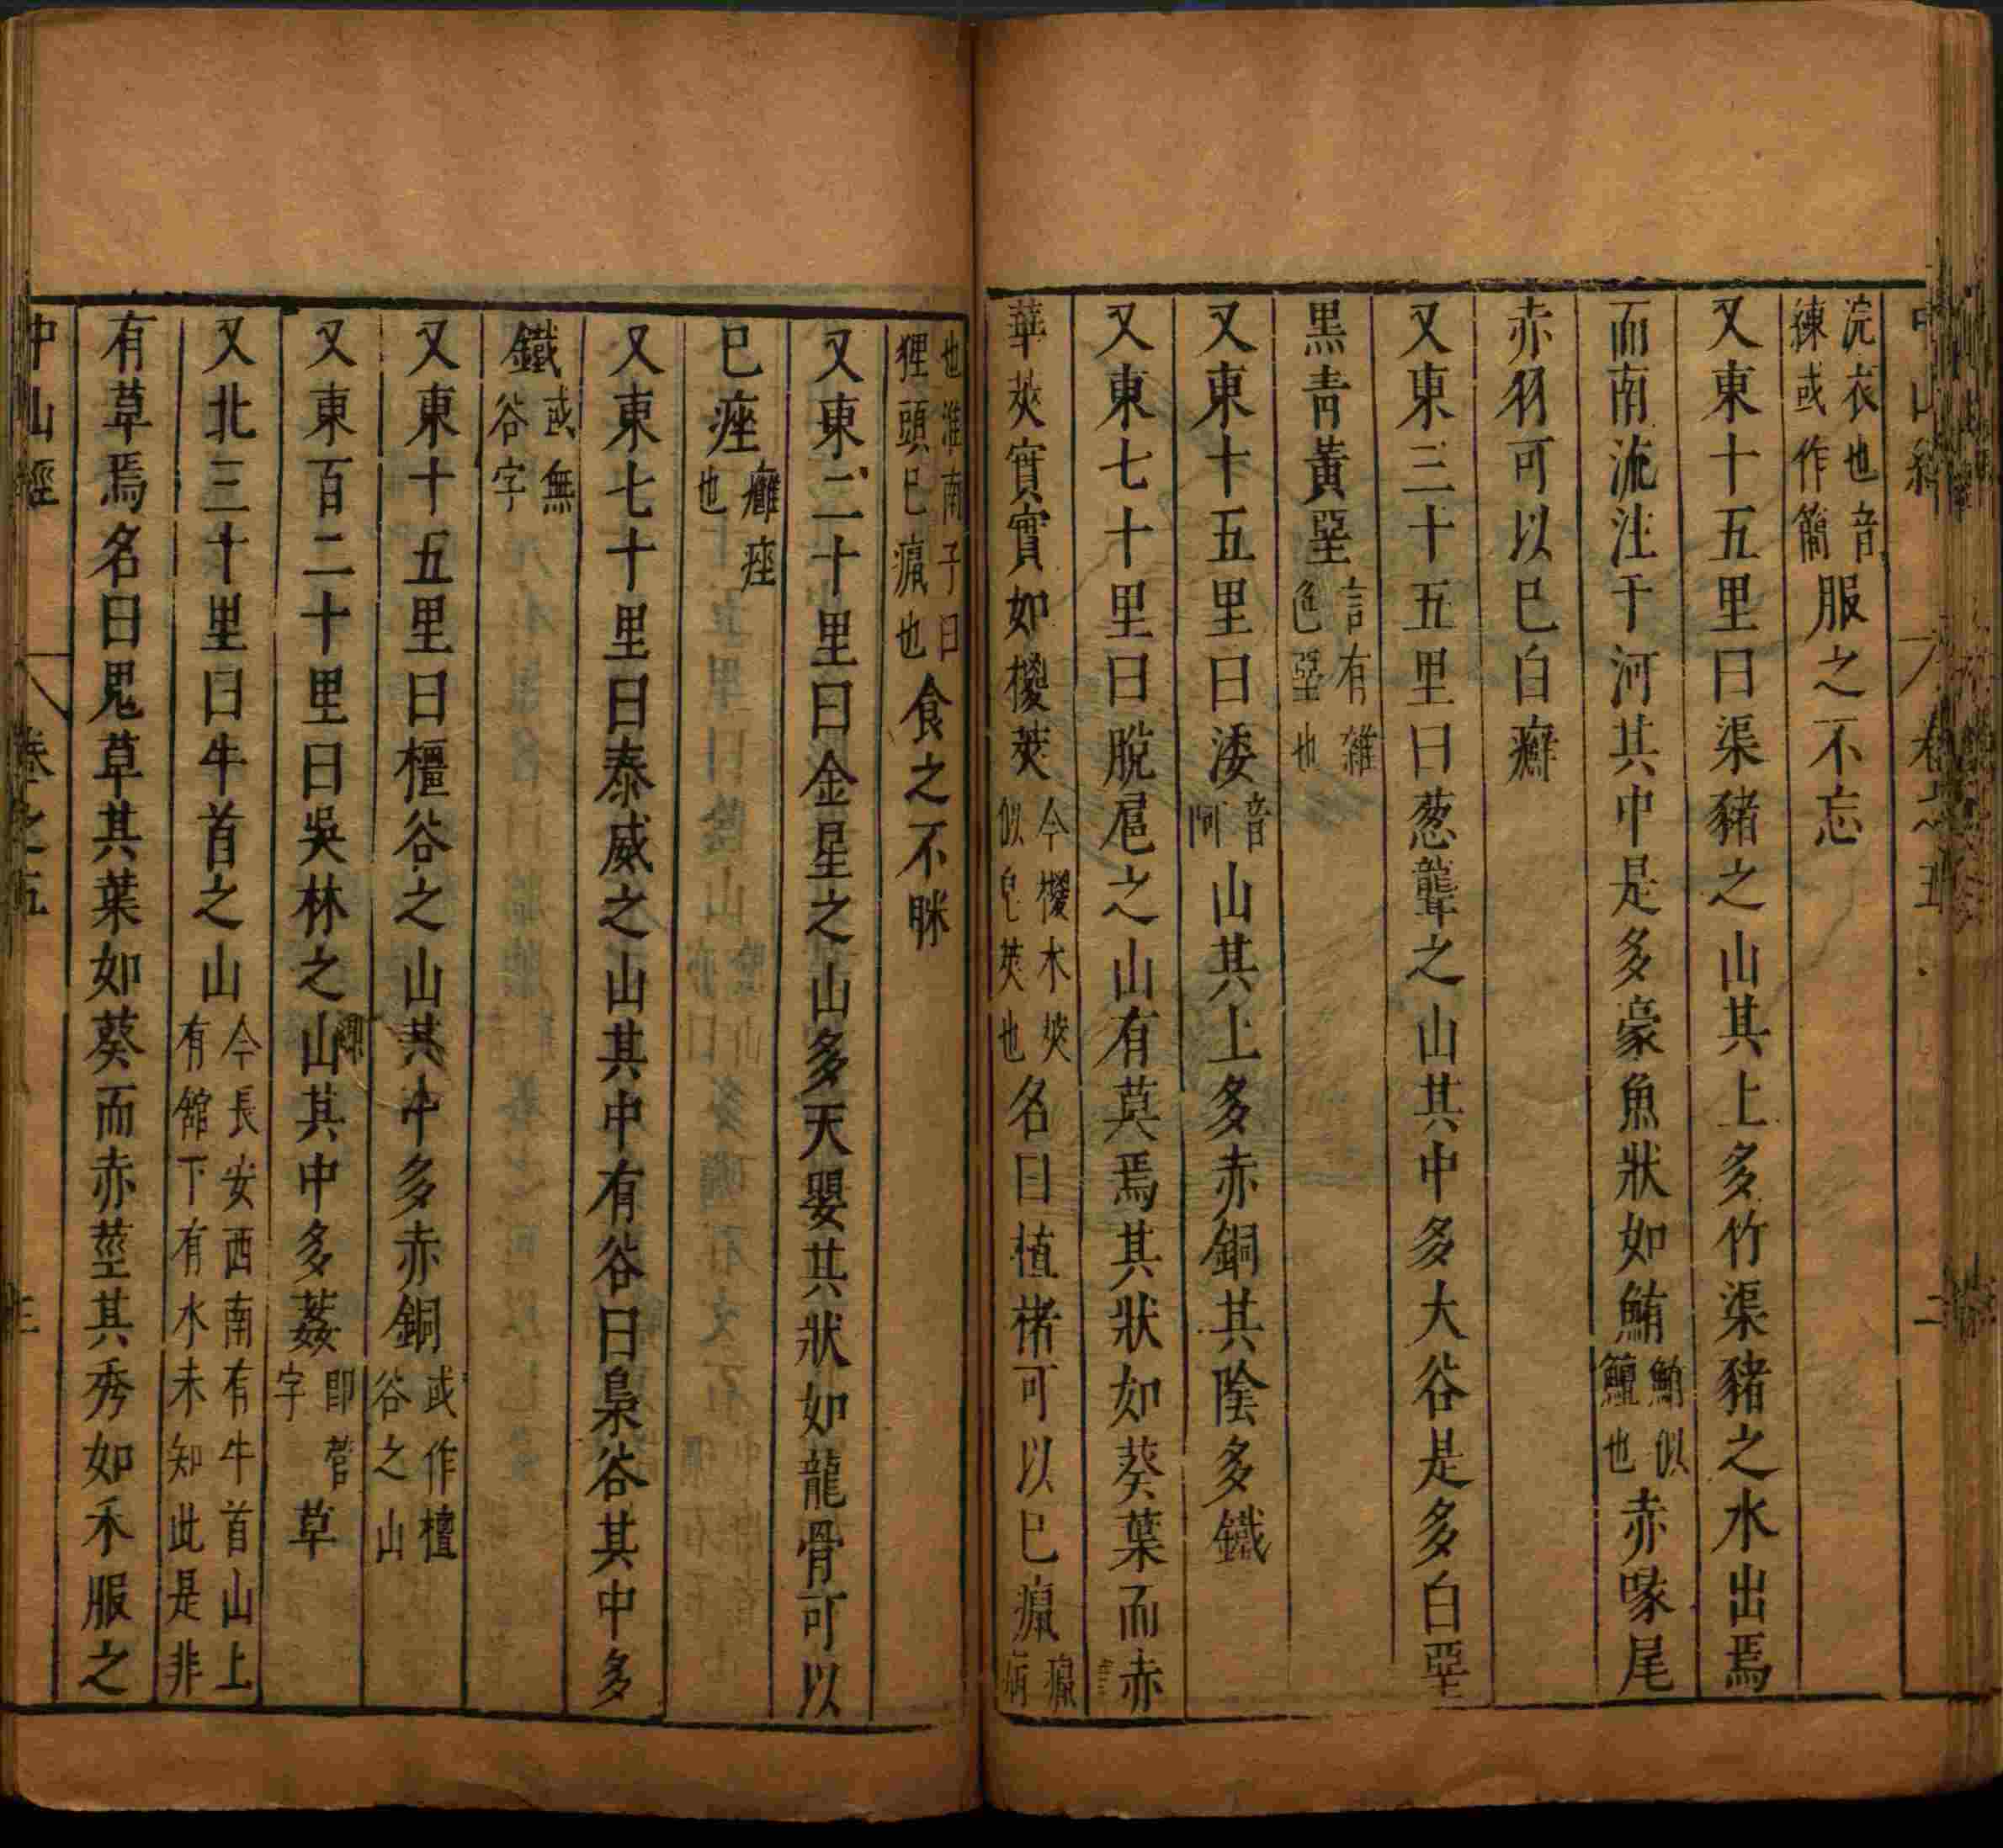 中山經 卷之五 二
浣衣也音練或作簡服之不忘
又東十五里曰渠豬之山其上多竹渠豬之水出焉
而南流注于河其中是多豪魚狀如鮪鮪似鱣也赤喙尾
赤羽可以已白癬
又東三十五里曰葱聾之山其中多大谷是多白堊
黑青黃堊言有雜色堊也
又東十五里曰涹音阿山其上多赤銅其陰多鐵
又東七十里曰脫扈之山有草焉其狀如葵葉而赤
華莢實實如椶莢今椶木莢似皂莢也名曰植楮可以已癙癙病
也淮南子曰狸頭已癙也食之不眯
又東二十里曰金星之山多天嬰其狀如龍骨可以
已痤癰痤也
又東七十里曰泰威之山其中有谷曰梟谷其中多
鐵或無谷字
又東十五里曰橿谷之山其中多赤銅或作檀谷之山
又東百二十里曰吳林之山其中多葌即菅字草
又北三十里曰牛首之山今長安西南有牛首山上有館下有水未知此是非
有草焉名曰鬼草其葉如葵而赤莖其秀如禾服之
中山經 卷之五 三